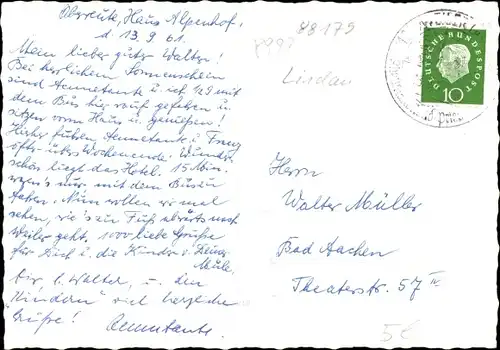 Oberreute, Haus Alpenhof!
d. 13.9.61.
Mein lieber guter Walter!
Bei herrlichem Sonnenschein
sind Aennetante u. ich 1/2 9 mit
dem Bus hier rauf gefahren u.
sitzen vorm Haus u. genießen!
Hierher fuhren Aennetante u. Franz
öfter übers Wochenende. Wunder-
schön liegt das Hotel. 15 Min.
waren's nur mit dem Bus zu
fahren. Nun wollen wir mal
sehen, wie's zu Fuß abwärts nach
Weiler geht. 1000 liebe Grüße
für Dich u. die Kinder v. Deiner
Mulle.
Dir, l. Walter, u. den
"Kindern" viel herzliche
Grüße! Aennetante.
88179
Lindau
DEUTSCHE BUNDESPOST
10
Herrn
Walter Müller
Bad Aachen
Theaterstr. 57 IV
5€